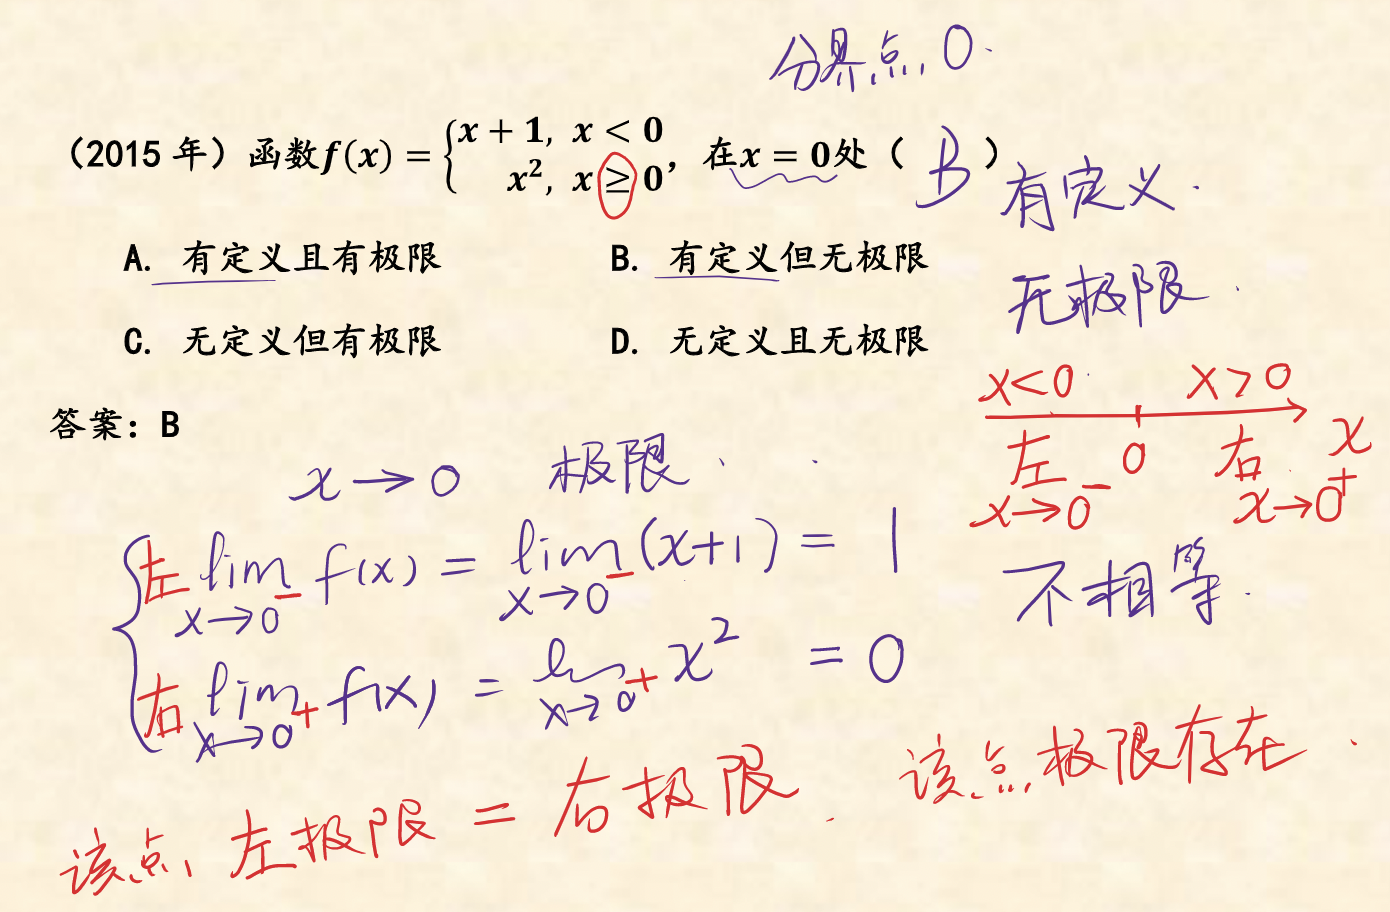 分界点 0.
（2015 年）函数f(x) = {x + 1, x < 0
x², x ≥ 0, 在x = 0处（ B ）
有定义.
A. 有定义且有极限 B. 有定义但无极限
无极限.
C. 无定义但有极限 D. 无定义且无极限
x<0 x>0
答案: B
左 0 右 x
x→0⁻ x→0⁺
x→0 极限.
左 lim x→0⁻ f(x) = lim x→0⁻ (x+1) = 1
不相等.
右 lim x→0⁺ f(x) = lim x→0⁺ x² = 0
该点 左极限 = 右极限. 该点极限存在.